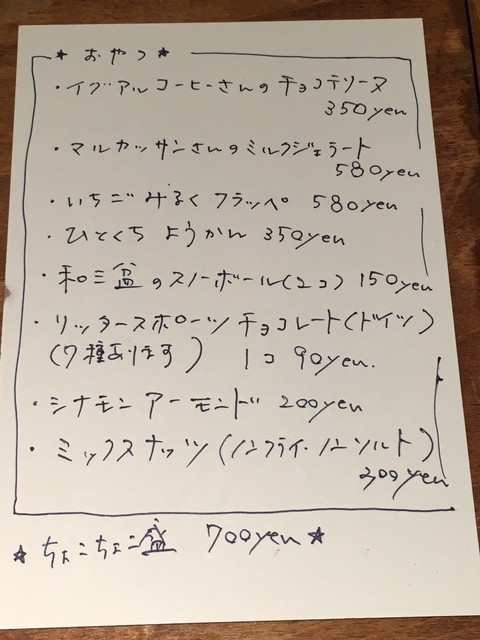 ★ おやつ ★
・イグアルコーヒーさんのチョコテリーヌ
350yen
・マルカッサンさんのミルクジェラート
580yen
・いちごみるくフラッペ 580yen
・ひとくちようかん 350yen
・和三盆のスノーボール(2コ) 150yen
・リッタースポーツチョコレート(ドイツ)
(7種あります) 1コ 90yen.
・シナモンアーモンド 200yen
・ミックスナッツ(ノンフライ・ノンソルト)
300yen
★ ちょこちょこ盛 700yen ★